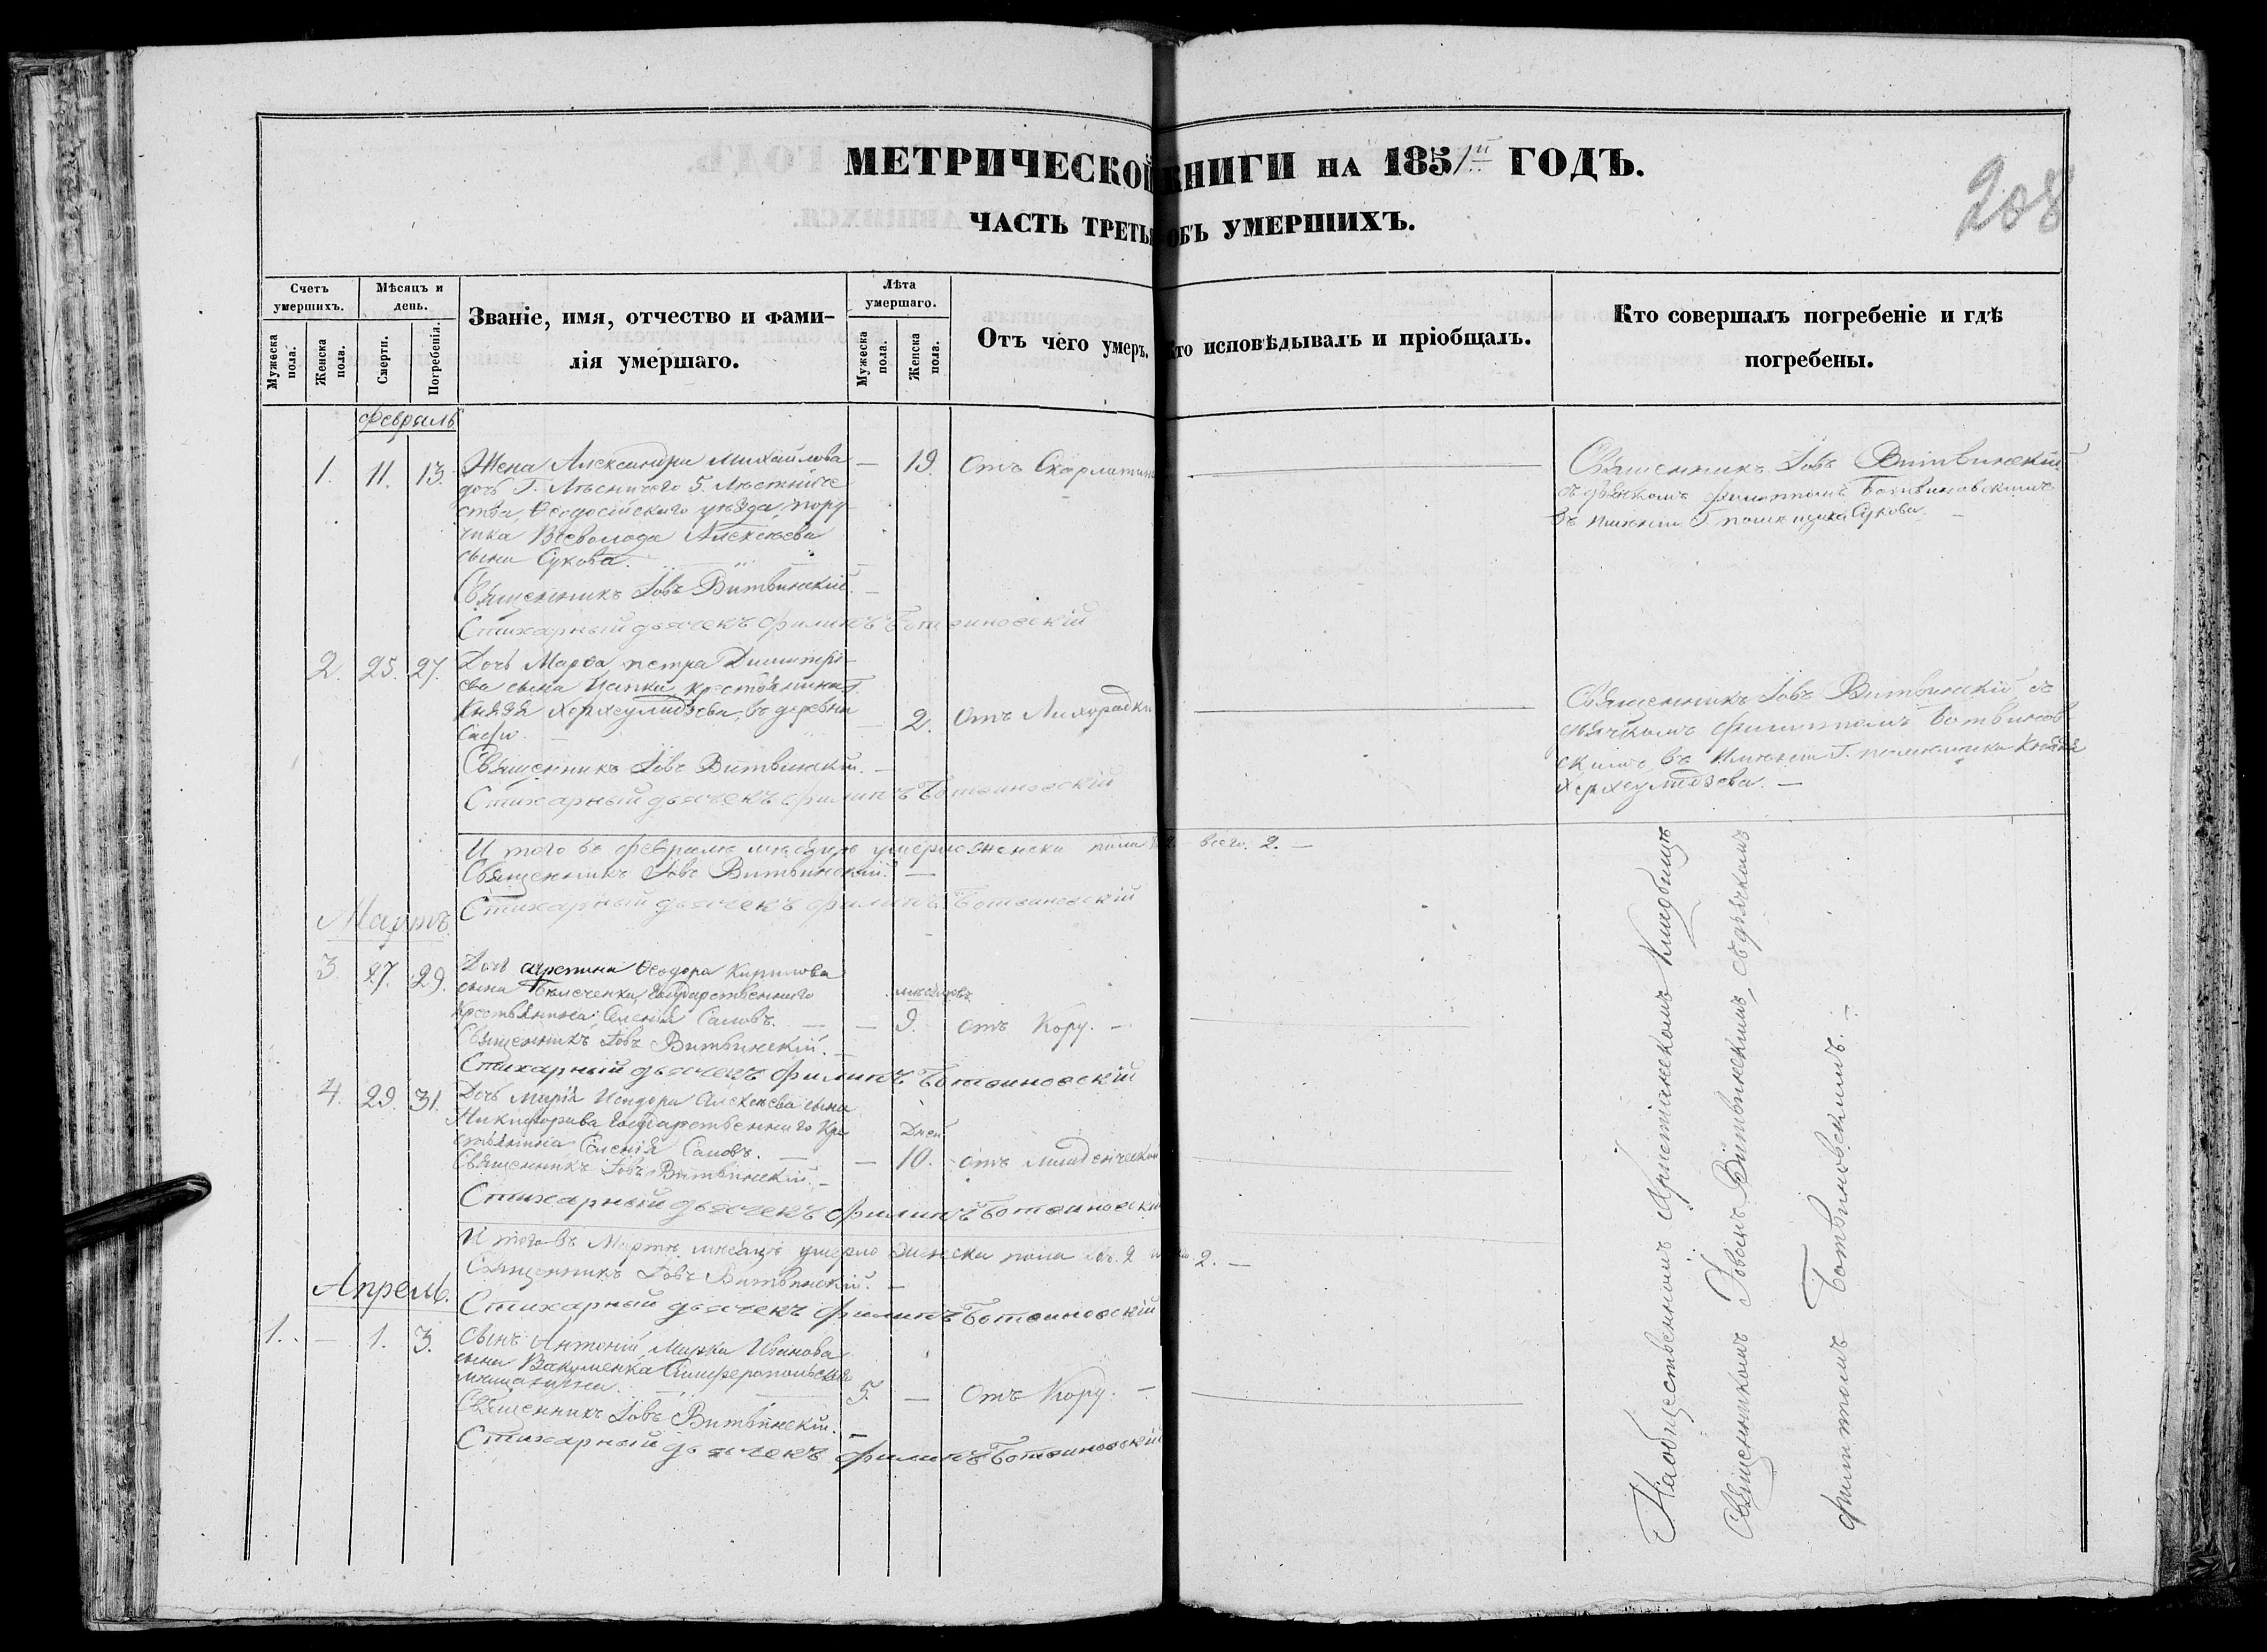 МЕТРИЧЕСКОЙ КНИГИ НА 1851й ГОДЪ.
208
ЧАСТЬ ТРЕТЬЯ ОБЪ УМЕРШИХЪ.
Счетъ умершихъ.
Мужеска пола.
Женска пола.
Мѣсяцъ и день.
Смерти.
Погребенія.
Званіе, имя, отчество и фами-
лія умершаго.
Лѣта умершаго.
Мужеска пола.
Женска пола.
Отъ чего умеръ.
Кто исповѣдывалъ и пріобщалъ.
Кто совершалъ погребеніе и гдѣ
погребены.
Февраль
1. 11. 13. Жена Александра Михайлова — 19. Отъ Скарлатины
дочь Г. Лѣсничего 5. Лѣстниче
ства, Ѳеодосійскаго уѣзда, пору
чика Всеволода Алексѣева
сына Сукова.
Священникъ Іовъ Витвинскій. —
Стихарный дьячекъ Филипъ Ботвиновскій
Священникъ Іовъ Витвинскій
съ дьячкомъ Филиппомъ Ботвиновскимъ
въ имѣніи Г. помѣщика Сукова —
2. 25. 27. Дочь Марѳа, петра Димитрі-
ева сына Цапки, крестьянина Г.
Князя Херхеулидзева, въ деревни
— 2. Отъ Лихорадки
Священникъ Іовъ Витвинскій. —
Стихарный дьячекъ Филипъ Ботвиновскій
Священникъ Іовъ Витвинскій, съ
дьячкомъ Филиппомъ Ботвинов
скимъ, въ Имѣніи Г. помѣщика Князя
Херхеулидзева. —
И того въ Февралѣ мѣсяцѣ умерло женска пола 2 — всего. 2. —
Священникъ Іовъ Витвинскій. —
Стихарный дьячекъ Филипъ Ботвиновскій
Мартъ
3. 27. 29. Дочь Агрепина Ѳеодора Кирилова
сына Государственнаго мѣсяцевъ
Крестьянина, Селенія Саловъ. — — 9. отъ Кору. —
Священникъ Іовъ Витвинскій. —
Стихарный дьячекъ Филипъ Ботвиновскій
4. 29. 31. Дочь Марія Исидора Алексѣева сына
Никифорова Государственнаго Кре дней
стьянина Селенія Саловъ. — — 10. отъ младенческой
Священникъ Іовъ Витвинскій. —
Стихарный дьячекъ Филипъ Ботвиновскій
И того въ Мартѣ мѣсяцѣ умерло женска пола 2 2. —
Священникъ Іовъ Витвинскій. —
Стихарный дьячекъ Филипъ Ботвиновскій
Апрель.
1. — 1. 3. Сынъ Антоній, Марка Иванова
сына Вакуменка Симферопольскаго
мещанина. 5. — Отъ Кору. —
Священникъ Іовъ Витвинскій. —
Стихарный дьячекъ Филипъ Ботвиновскій
На общественномъ Христіанскомъ Кладбищѣ
Священникомъ Іовомъ Витвинскимъ, съ дьячкомъ
Филиппомъ Ботвиновскимъ. —